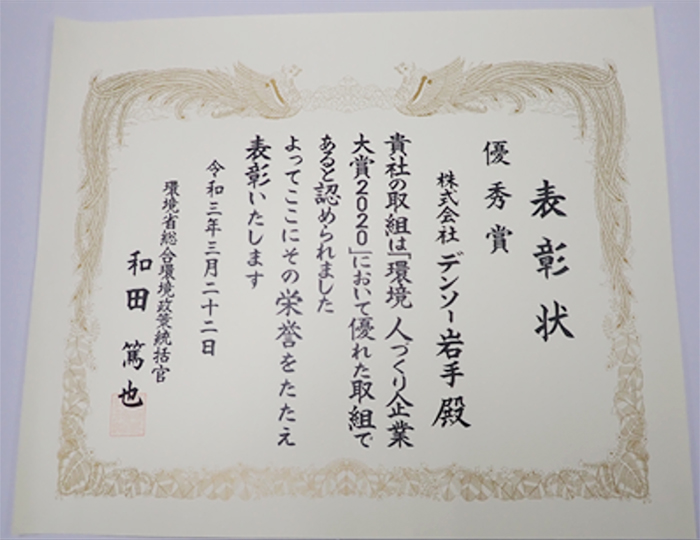 表彰状
優秀賞
株式会社 デンソー岩手 殿
貴社の取組は「環境 人づくり企業
大賞2020」において優れた取組で
あると認められました
よってここにその栄誉をたたえ
表彰いたします
令和三年三月二十二日
環境省総合環境政策統括官
和田 篤也